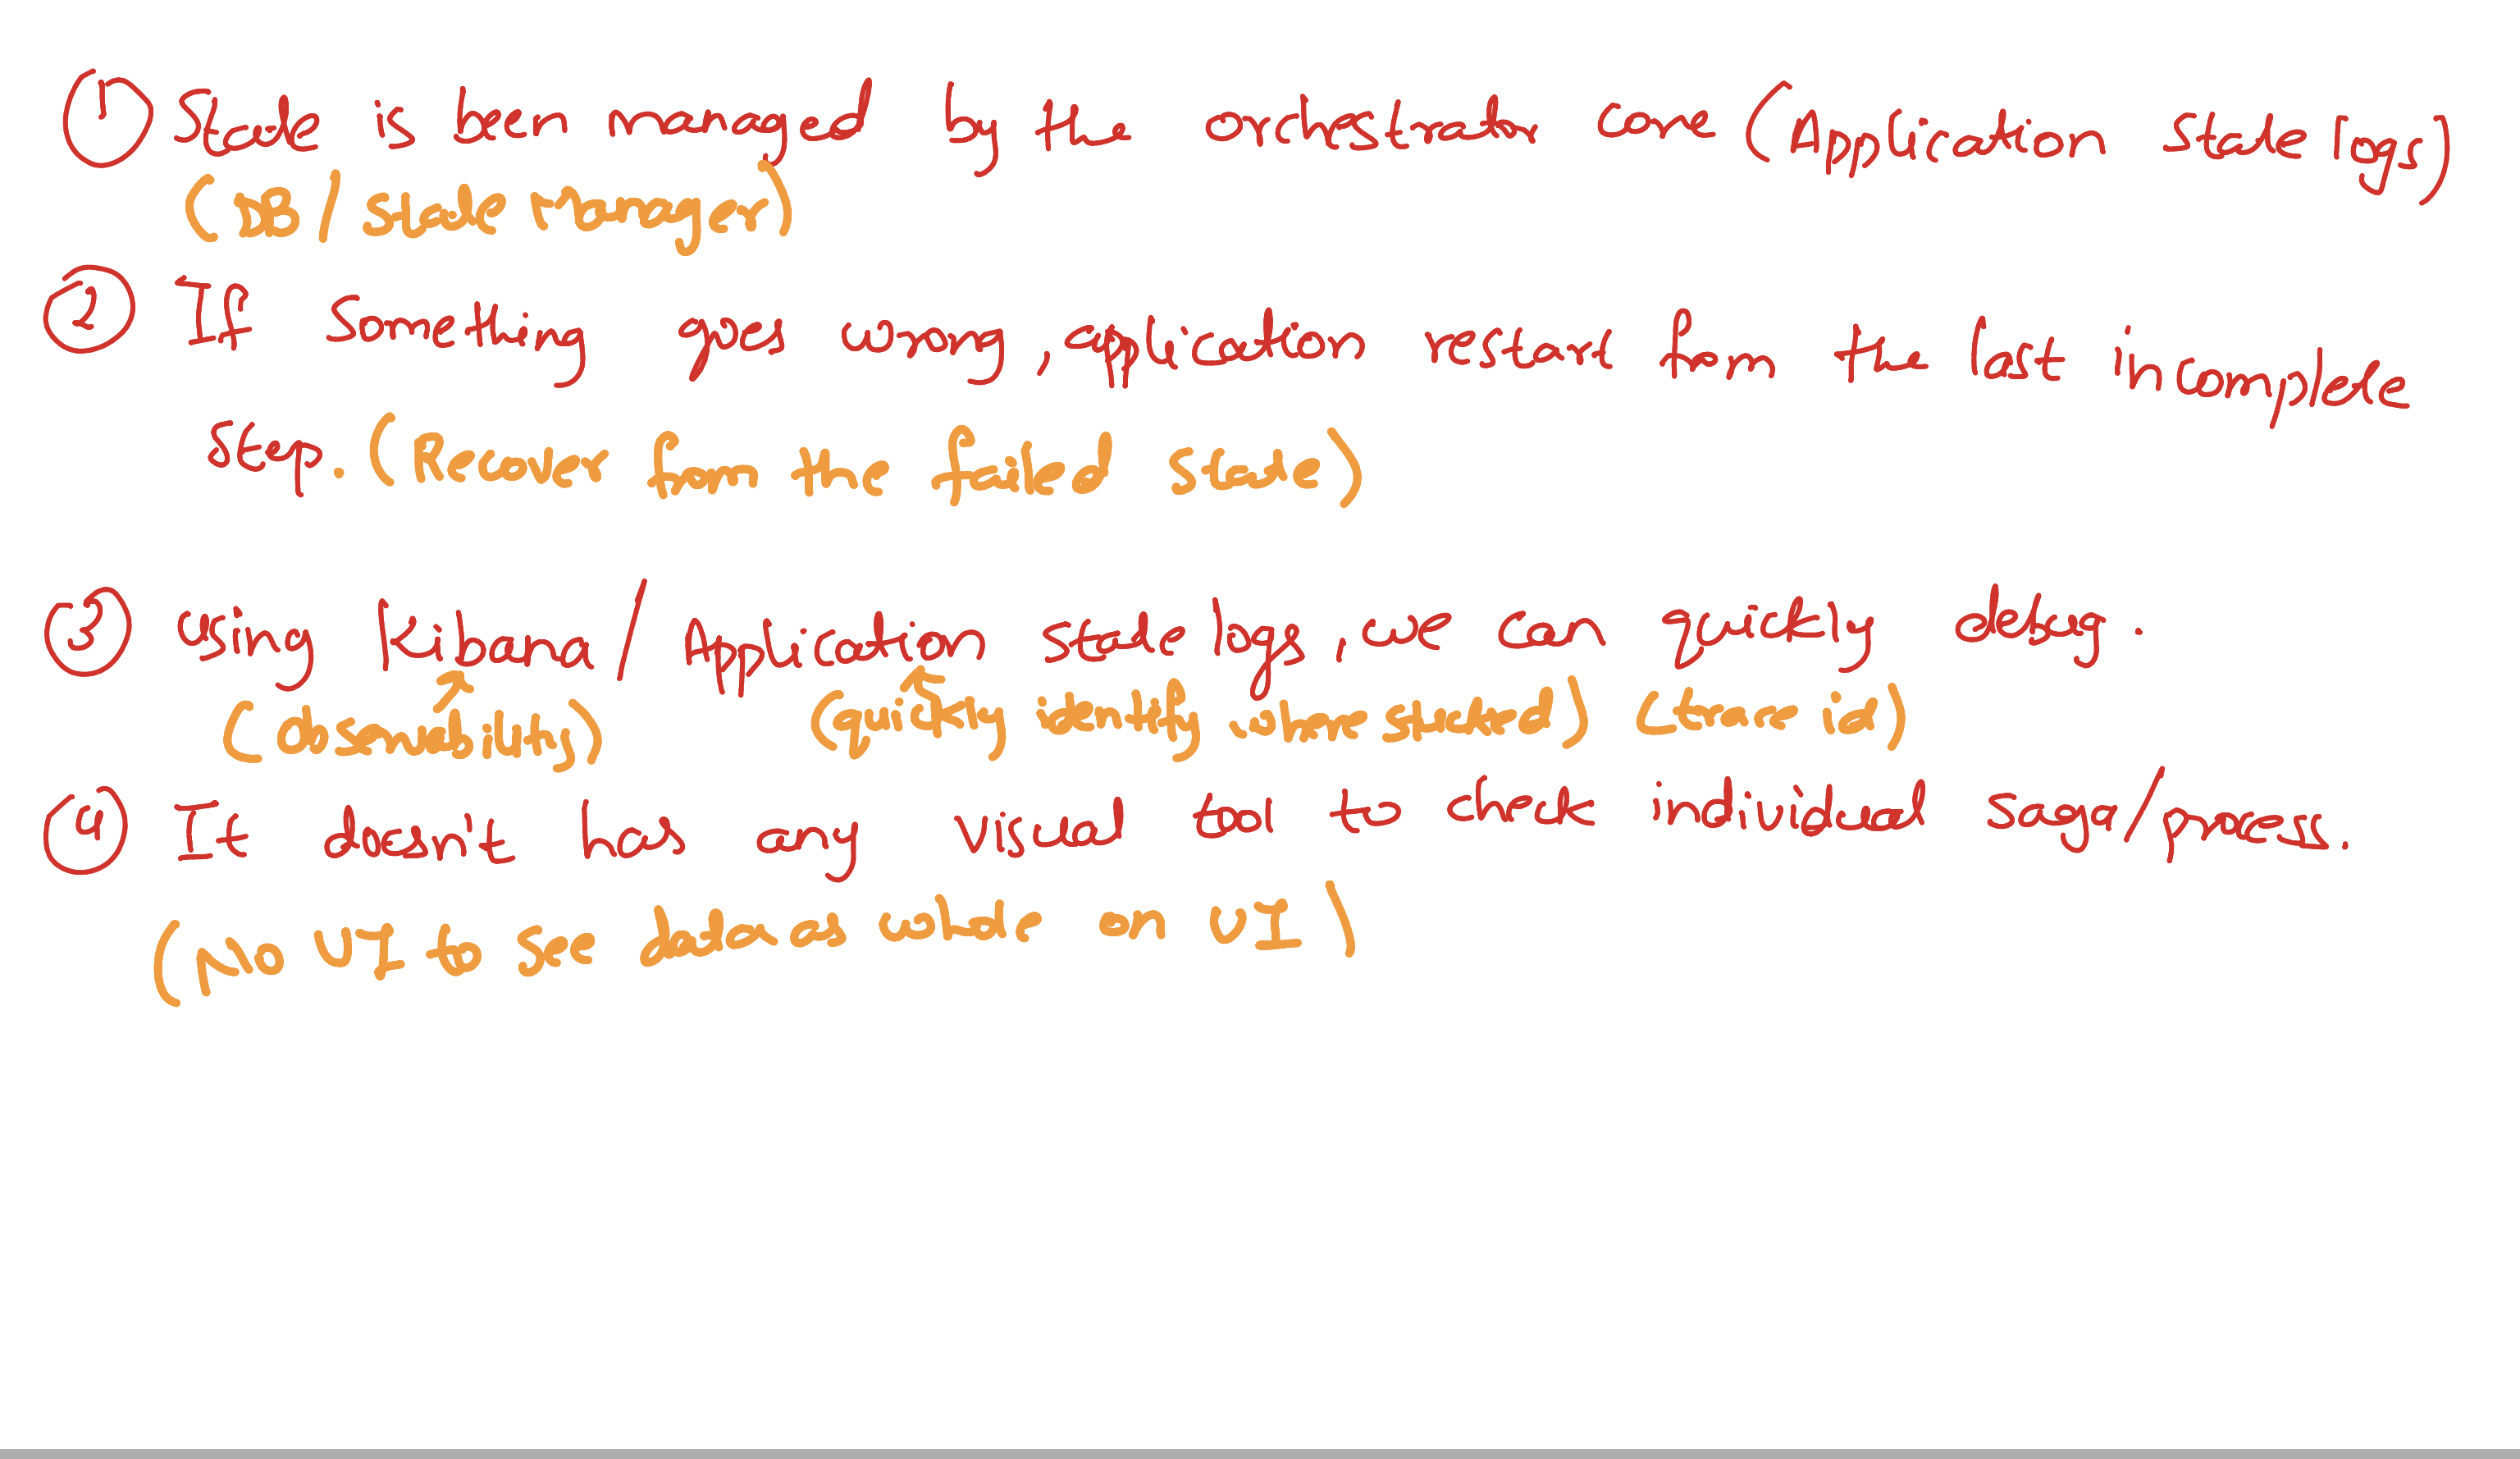 ① State is been managed by the orchastrator core (Application state logs)
(DB/state Manager)
② If Something goes wrong, application restart from the last incomplete
step. (Recover from the failed state)
③ Using Kibana/Application state logs, we can quickly debug.
(Observability) (quickly identify where stucked) (trace id)
④ It doesn't has any visual tool to check individual saga/process.
(No UI to see data as whole on UI)